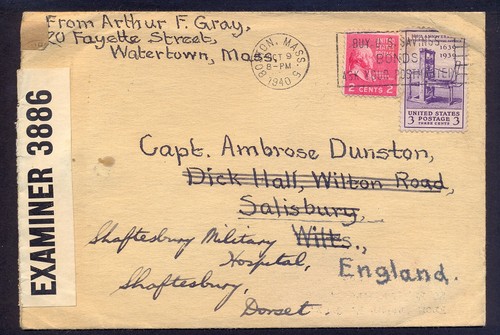 From Arthur F. Gray,
20 Fayette Street,
Watertown, Mass.
BOSTON, MASS. 5
OCT 9
8-PM
1940
BUY U.S. SAVINGS
BONDS
ASK YOUR POSTMASTER
2 CENTS 2
1639
1939
UNITED STATES
POSTAGE
3 THREE CENTS 3
EXAMINER 3886
Capt. Ambrose Dunston,
Dick Hall, Wilton Road,
Salisbury,
Wilts.,
England.
Shaftesbury Military
Hospital,
Shaftesbury,
Dorset.